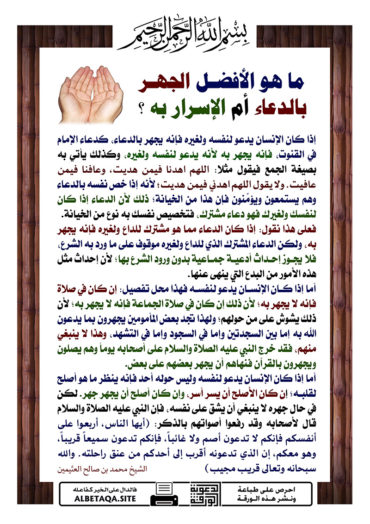 بسم الله الرحمن الرحيم
ما هو الأفضل الجهر
بالدعاء أم الإسرار به ؟
إذا كان الإنسان يدعو لنفسه ولغيره فإنه يجهر بالدعاء، كدعاء الإمام
في القنوت، فإنه يجهر به لأنه يدعو لنفسه ولغيره، وكذلك يأتي به
بصيغة الجمع فيقول مثلا: اللهم اهدنا فيمن هديت، وعافنا فيمن
عافيت، ولا يقول اللهم اهدني فيمن هديت؛ لأنه إذا خص نفسه بالدعاء
وهم يستمعون ويؤمنون فإن هذا من الخيانة؛ ذلك لأن الدعاء إذا كان
لنفسك ولغيرك فهو دعاء مشترك، فتخصيص نفسك به نوع من الخيانة.
فعلى هذا نقول: إذا كان الدعاء مما هو مشترك للداع ولغيره فإنه يجهر
به، ولكن الدعاء المشترك الذي للداع ولغيره موقوف على ما ورد به الشرع،
فلا يجوز إحداث أدعية جماعية بدون ورود الشرع بها؛ لأن إحداث مثل
هذه الأمور من البدع التي ينهى عنها.
أما إذا كان الإنسان يدعو لنفسه فهذا محل تفصيل: إن كان في صلاة
فإنه لا يجهر به؛ لأن ذلك إن كان في صلاة الجماعة فإنه لا يجهر به؛ لأن
ذلك يشوش على من حولهم؛ ولهذا نجد بعض المأمومين يجهرون بما يدعون
الله به إما بين السجدتين وإما في السجود وإما في التشهد، وهذا لا ينبغي
منهم، فقد خرج النبي عليه الصلاة والسلام على أصحابه يوما وهم يصلون
ويجهرون بالقرآن فنهاهم أن يجهر بعضهم على بعض.
أما إذا كان الإنسان يدعو لنفسه وليس حوله أحد فإنه ينظر ما هو أصلح
لقلبه؛ إن كان الأصلح أن يسر أسر، وإن كان أصلح أن يجهر جهر، لكن
في حال جهره لا ينبغي أن يشق على نفسه، فإن النبي عليه الصلاة والسلام
قال لأصحابه وقد رفعوا أصواتهم بالذكر: (أيها الناس، أربعوا على
أنفسكم فإنكم لا تدعون أصم ولا غائباً، فإنكم تدعون سميعاً قريباً،
وهو معكم، إن الذي تدعونه أقرب إلى أحدكم من عنق راحلته. والله
سبحانه وتعالى قريب مجيب)
الشيخ محمد بن صالح العثيمين
احرص على طباعة
ونشر هذه الورقة
فالدال على الخير كفاعله
ALBETAQA.SITE